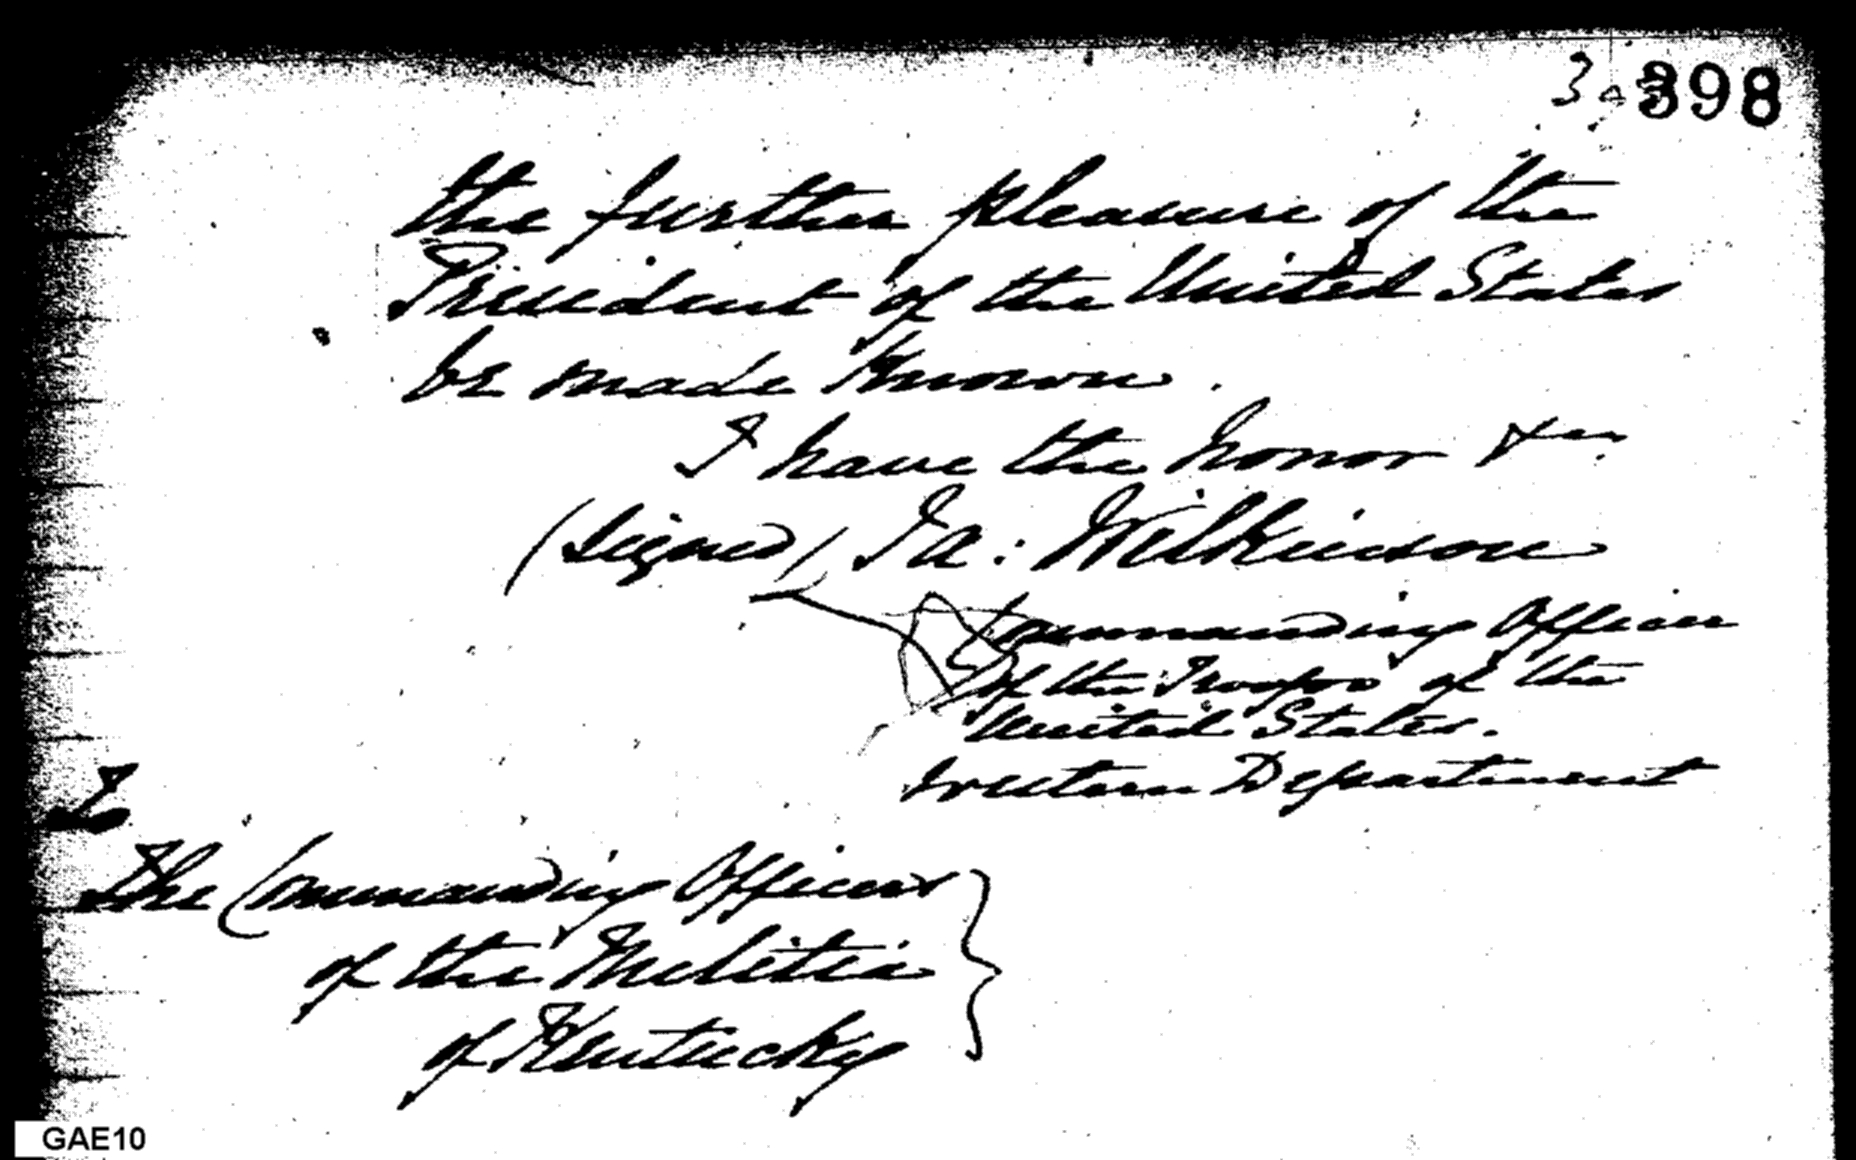 398
the further pleasure of the
President of the United States
be made known.
I have the honor &c.
(signed) Ja: Wilkinson
Commanding Officer
of the Troops of the
United States.
Western Department
To
The Commanding Officers
of the Militia
of Kentucky
GAE10